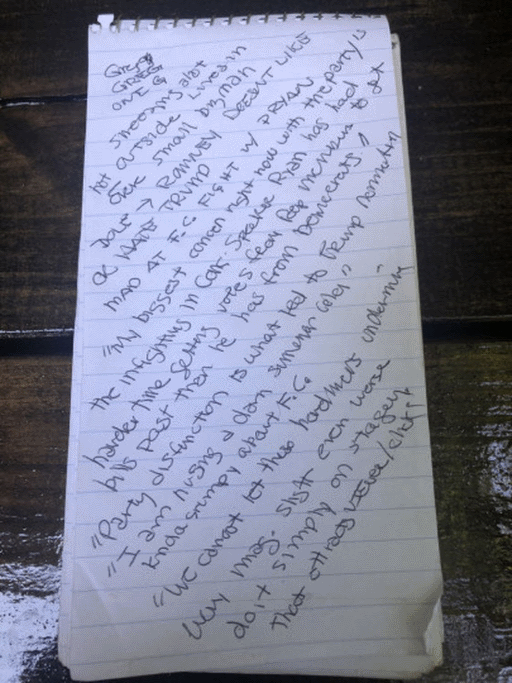 Greg
GREGG
ONE G
sneezing alot
hot outside lives in
Gene small bizman
Doug → ROMNEY DOESN'T LIKES
OC WANTS TRUMP
MAD AT F.C. FIGHT w/ PRYAN
"My biggest concern right now with the party is
the infighting in Con. Speaker Ryan has had
harder time getting votes from Rep members to get
bills past then he has from Democrats"
"Party disfunction is what led to Trump nomination
"I am nursing a damn summer cold"
kinda grumpy about F.C.
"We cannot let these hardliners undermine
way imag. slightly even worse
do it simply on strategy
that